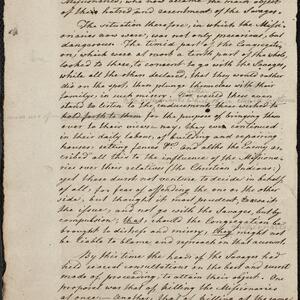 Missionaries, who had become the main object
of their hatred and resentment of the Savages.
The situation therefore, in which the Missi-
onaries now were, was not only precarious, but
dangerous. The timid part of the Congregati-
on, which were at most a tenth part of the whole,
looked to them, to consent to go with the Savages,
while all the others declared, that they would rather
die on the spot, than plunge themselves with their
familys, in such misery.
stand to listen to the
hold forth to them for the purpose of bringing them
over to their views; nay, they even continued
in their daily labour, of building and repairing
houses; setting fences &c. and altho the Enemy as-
cribed all this to the influence of the Missiona-
ries over their relatives (the Christian Indians;)
yet these durst not venture to decide in behalf
of all, for fear of offending the one or the other
side, but thought it most prudent, to wait
the issue, and not go with the Savages, but by
compulsion; that, should this Congregation be
brought to distress and misery, they might not
be liable to blame and reproach on that account.
By this time the heads of the Savages had
held several consultations on the best and most
mode of proceeding to attain their object. One
proposal was that of killing the Missionaries
at once — Another, that of killing